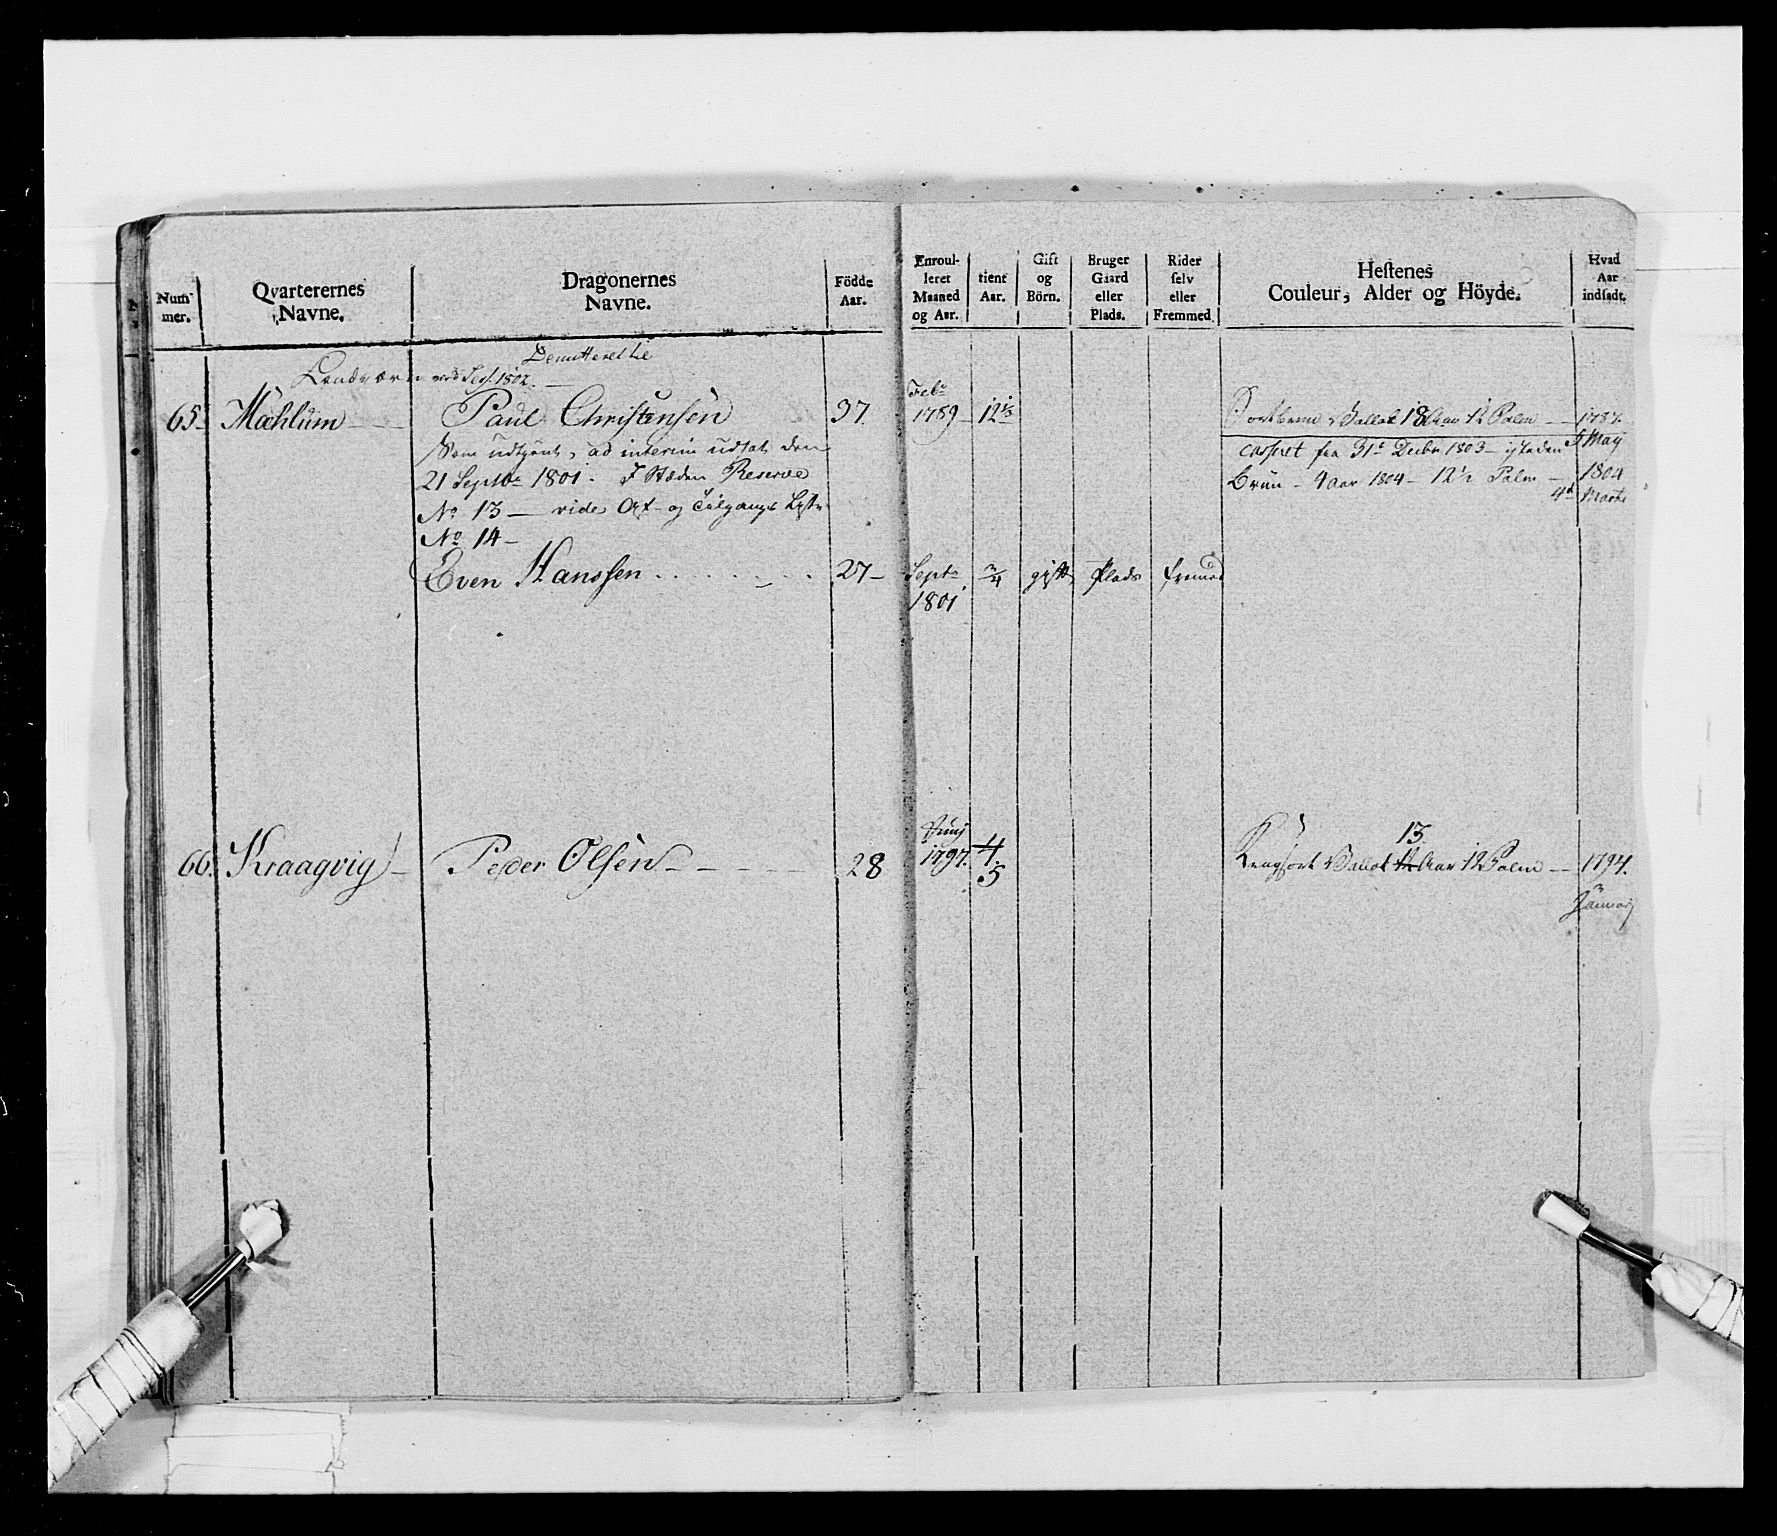 Num-
mer.
Qvarterernes
Navne.
Dragonernes
Navne.
Födde
Aar.
Enroul-
leret
Maaned
og Aar.
tient
Aar.
Gift
og
Börn.
Bruger
Gaard
eller
Plads.
Rider
selv
eller
Fremmed.
Hestenes
Couleur, Alder og Höyde.
Hvad
Aar
indsadt.
Demitteret til
Landværn ved Sess. 1802.
65 Mæhlum Paul Christensen 37
Febr
1789 12 1/3
Sortbrun Vallak 18 Aar 12 Palm 1787.
Som udtient, ad interim udsat den
21 Septbr 1801. I Stæden Reserve
No 13 vide Af- og Tilgangs Lyste
No 14
casseret fra 31te Decbr 1803 - isteden
5 May
Brun - 4 aar 1804 - 12 1/2 Palm
1804
4de Marts
Even Hanssen 27
Septr
1801
3/4 gift Plads fremed
66. Kraagvig Peder Olsen 28
Junj
1797. 4/5
13
Sort Vallak 12 Aar 12 Palm 1794.
Januarj